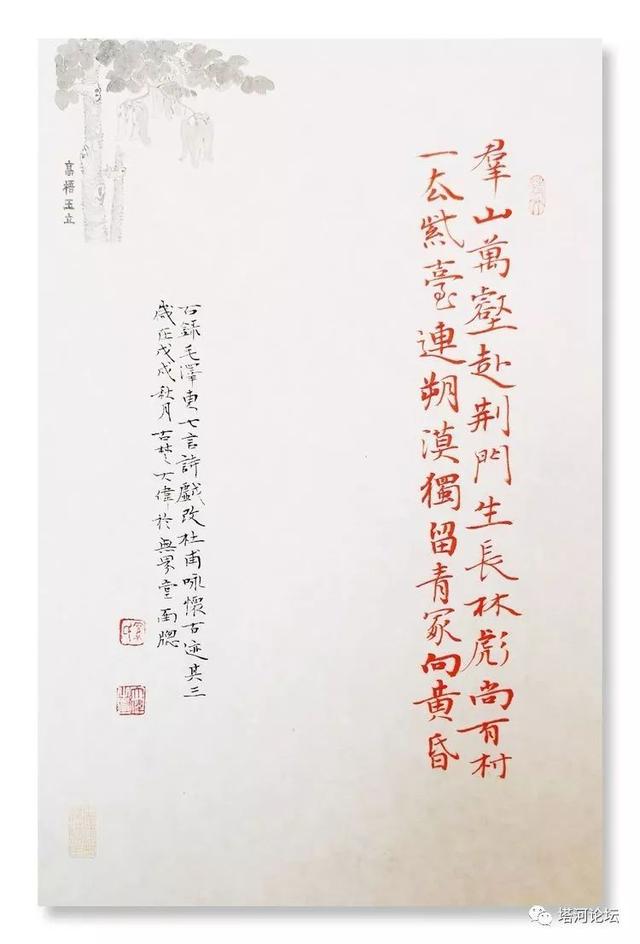 羣山萬壑赴荆門生長林彪尚有村
一去紫臺連朔漠獨留青冢向黄昏
右録毛澤東七言詩戲改杜甫咏懷古迹其三
歲在戊戌秋月古楚大偉於無界堂南牕
高梧玉立
塔河论坛